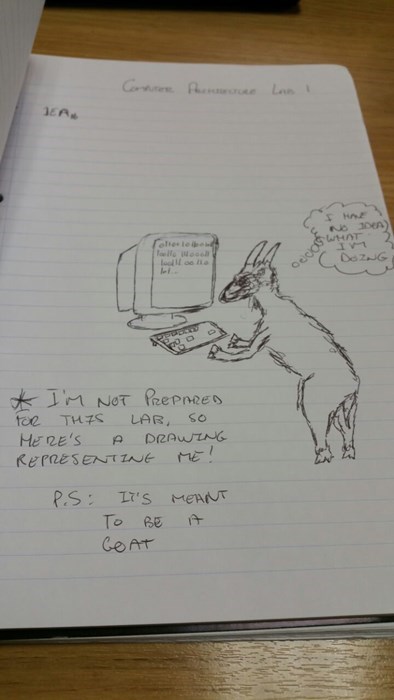 COMPUTER ARCHITECTURE LAB 1
I HAVE
NO IDEA
WHAT
I'M
DOING
* I'M NOT PREPARED
FOR THIS LAB, SO
HERE'S A DRAWING
REPRESENTING ME!
P.S: IT'S MEANT
TO BE A
GOAT